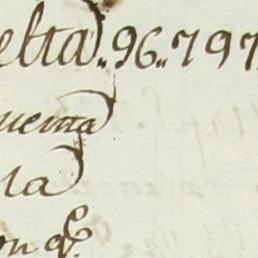 elta ,,96,,797
uenta
la
on q.e